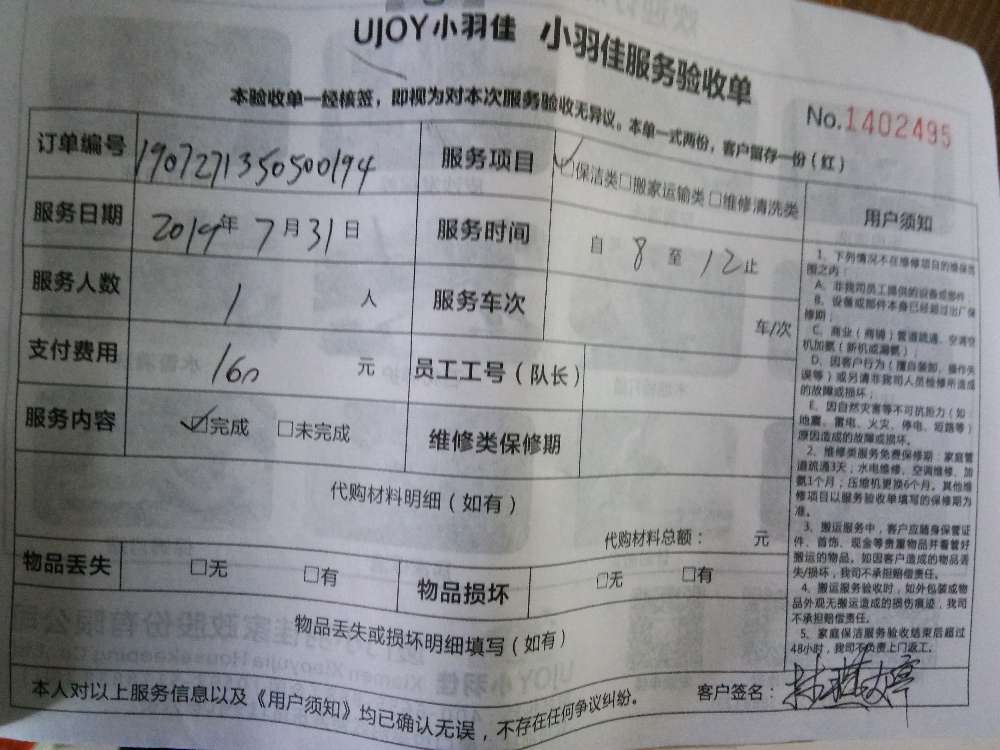 UJOY小羽佳 小羽佳服务验收单
本验收单一经核签，即视为对本次服务验收无异议。本单一式两份，客户留存一份（红）
No.1402495
订单编号 1907271350500194 服务项目 ☑保洁类□搬家运输类□维修清洗类
服务日期 2019年7月31日 服务时间 自8至12止
服务人数 1人 服务车次 车/次
支付费用 160元 员工工号（队长）
服务内容 ☑完成 □未完成 维修类保修期
代购材料明细（如有）
代购材料总额： 元
物品丢失 □无 □有 物品损坏 □无 □有
物品丢失或损坏明细填写（如有）
本人对以上服务信息以及《用户须知》均已确认无误，不存在任何争议纠纷。
客户签名：
用户须知
1、下列情况不在维修项目的维保范
围之内：
A、非我司员工提供的设备或部件；
B、设备或部件本身已经超过出厂保
修期；
C、商业（商铺）管道疏通、空调空
机加氨（新机或漏氨）；
D、因客户行为（擅自装卸、操作失
误等）或另请非我司人员维修所造成
的故障或损坏；
E、因自然灾害等不可抗拒力（如
地震、雷电、火灾、停电、短路等）
原因造成的故障或损坏。
2、维修类服务免费保修期：家庭管
道疏通3天；水电维修、空调维修、加
氨1个月；压缩机更换6个月。其他维
修项目以服务验收单填写的保修期为
准。
3、搬运服务中，客户应随身保管证
件、首饰、现金等贵重物品并看管好
搬运的物品。如因客户造成的物品丢
失/损坏，我司不承担赔偿责任。
4、搬运服务验收时，如外包装或物
品外观无搬运造成的损伤痕迹，我司
不承担赔偿责任。
5、家庭保洁服务验收结束后超过
48小时，我司不负责上门返工。